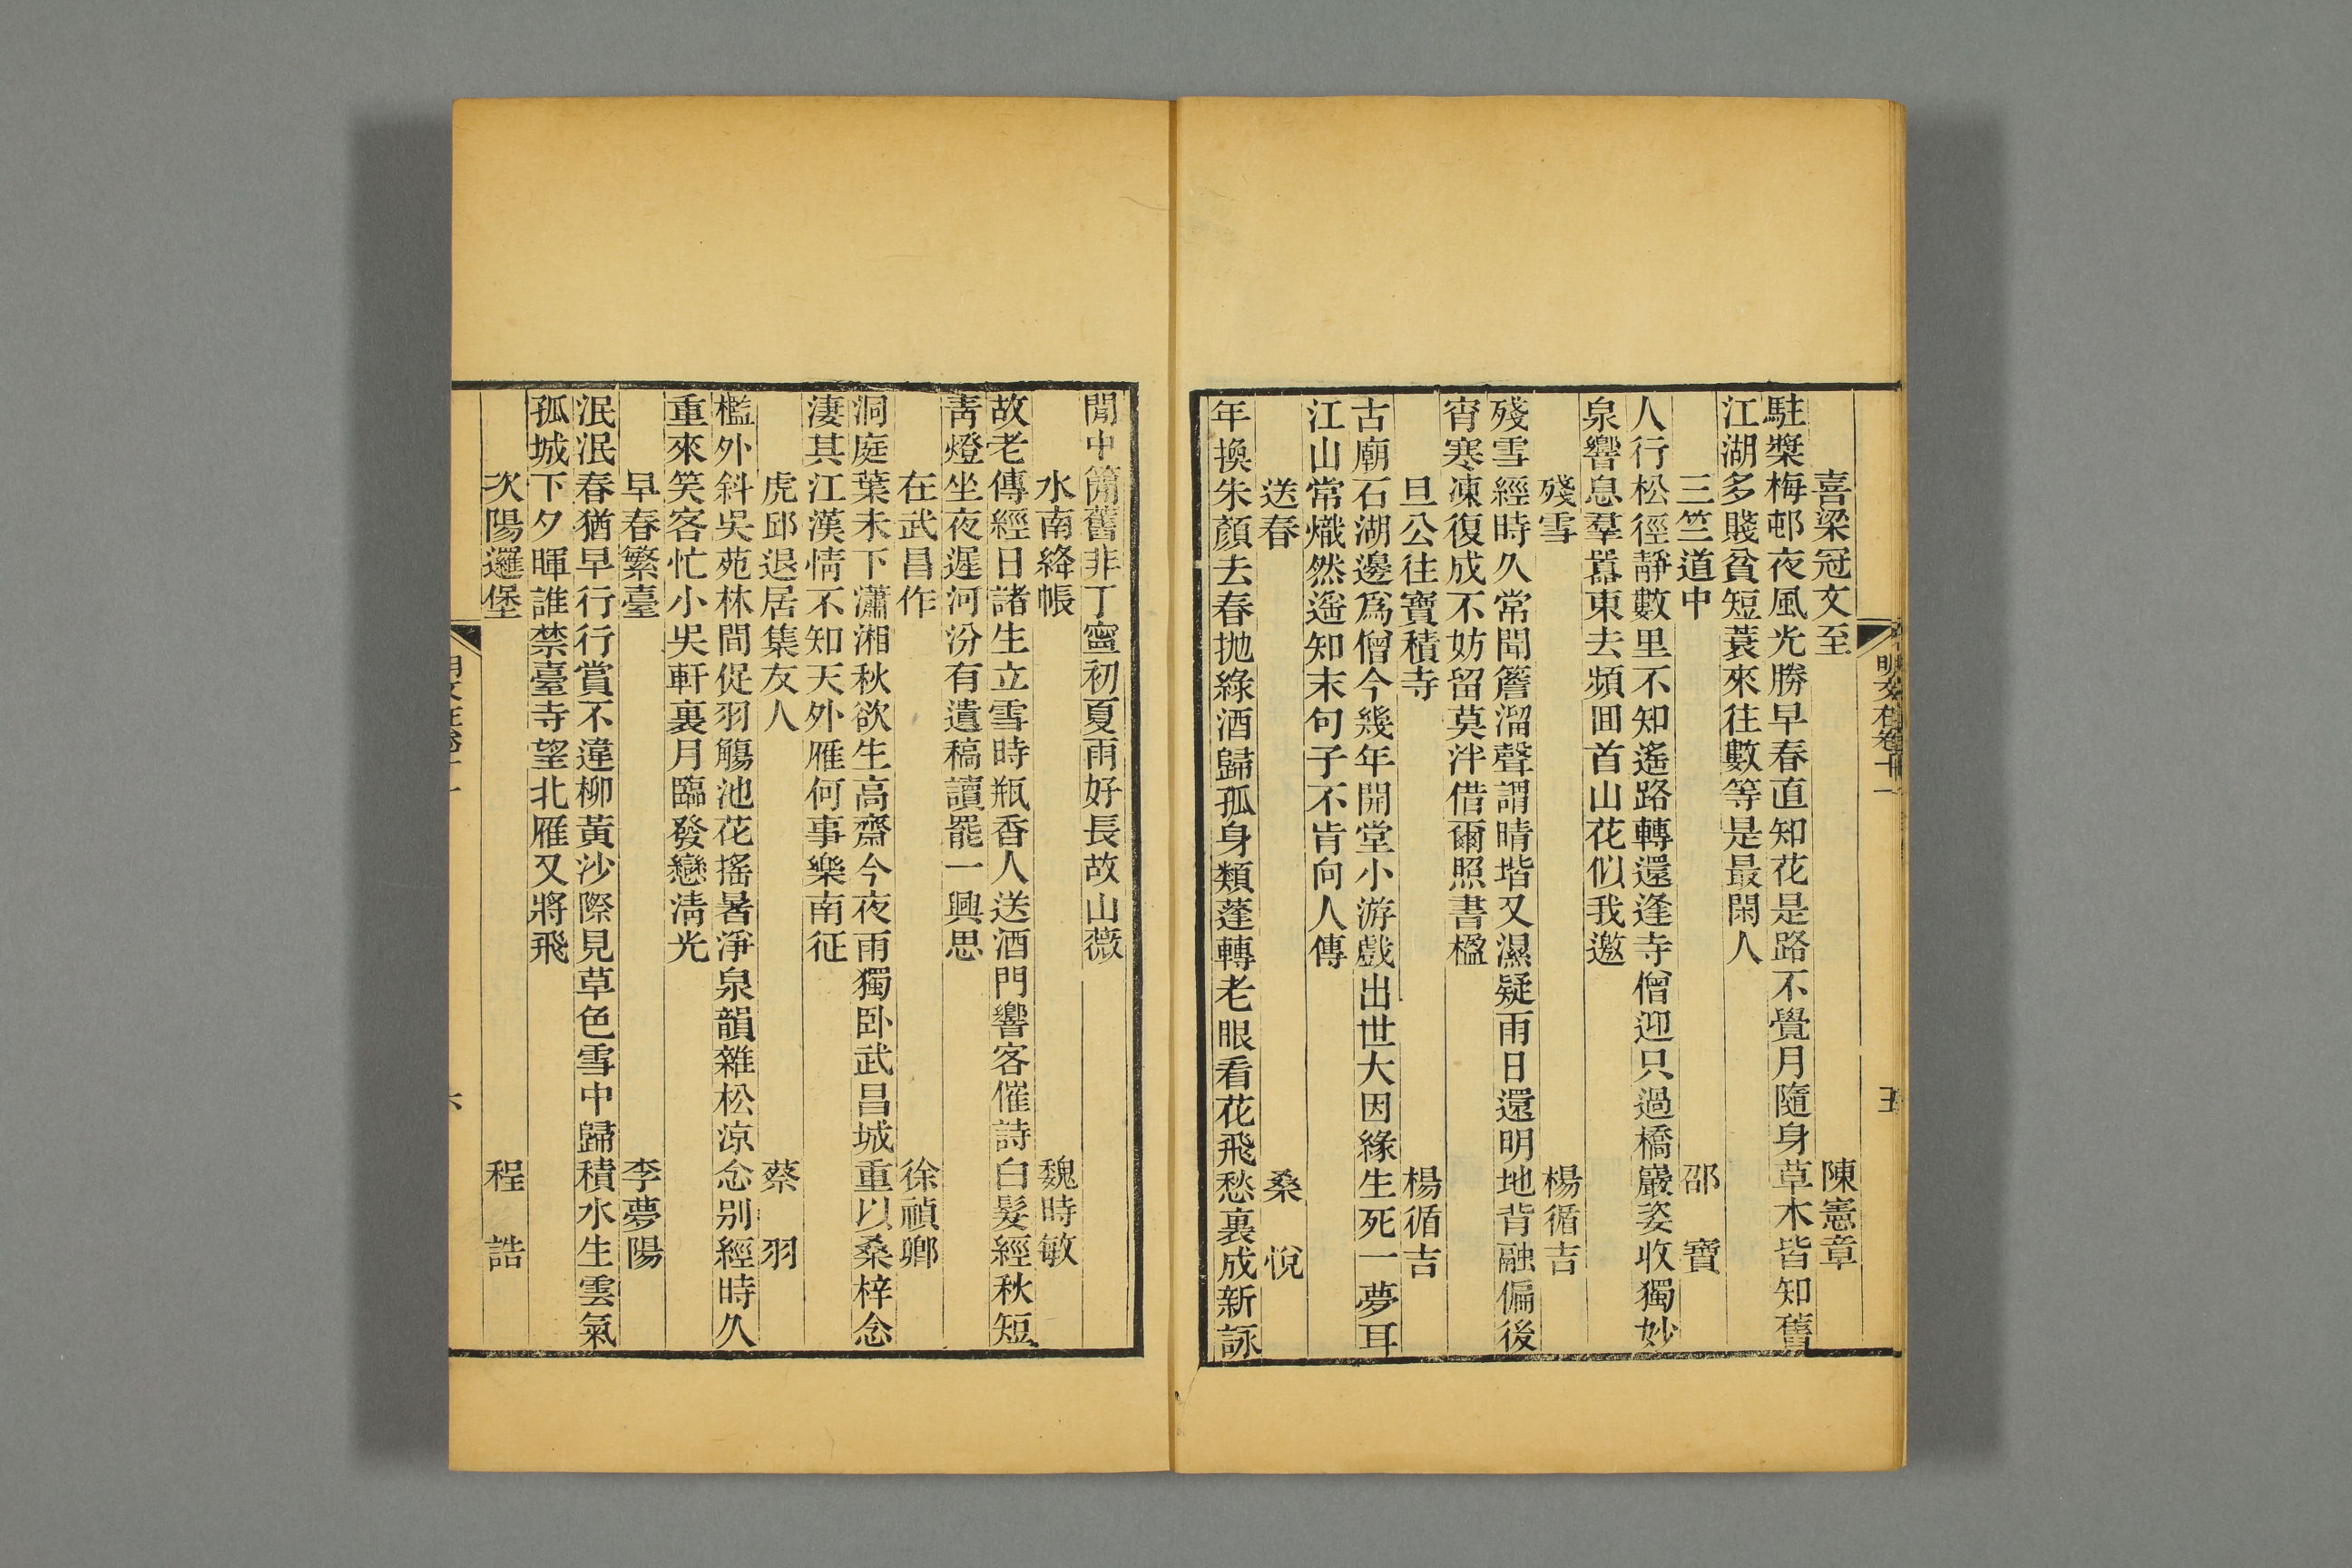 明文在卷十一
五
喜梁冠文至 陳憲章
駐槳梅邨夜風光勝早春直知花是路不覺月隨身草木皆知舊
江湖多賤貧短蓑來往數等是最閑人
三竺道中 邵寶
人行松徑靜數里不知遙路轉還逢寺僧迎只過橋巖姿收獨妙
泉響息羣囂東去頻囬首山花似我邀
殘雪 楊循吉
殘雪經時久常聞簷溜聲謂晴堦又濕疑雨日還明地背融偏後
宵寒凍復成不妨留莫泮借爾照書楹
旦公往寶積寺 楊循吉
古廟石湖邊爲僧今幾年開堂小游戲出世大因緣生死一夢耳
江山常熾然遥知末句子不肯向人傳
送春 桑悅
年換朱顏去春抛綠酒歸孤身類蓬轉老眼看花飛愁裏成新詠
閒中簡舊非丁寧初夏雨好長故山薇
水南絳帳 魏時敏
故老傳經日諸生立雪時瓶香人送酒門響客催詩白髮經秋短
靑燈坐夜遲河汾有遺稿讀罷一興思
在武昌作 徐禎卿
洞庭葉未下瀟湘秋欲生高齋今夜雨獨卧武昌城重以桑梓念
淒其江漢情不知天外雁何事樂南征
虎邱退居集友人 蔡羽
檻外斜吳苑林間促羽觴池花搖暑淨泉韻雜松凉念别經時久
重來笑客忙小吳軒裏月臨發戀淸光
早春繁臺 李夢陽
泯泯春猶早行行賞不違柳黃沙際見草色雪中歸積水生雲氣
孤城下夕暉誰禁臺寺望北雁又將飛
次陽邏堡 程誥